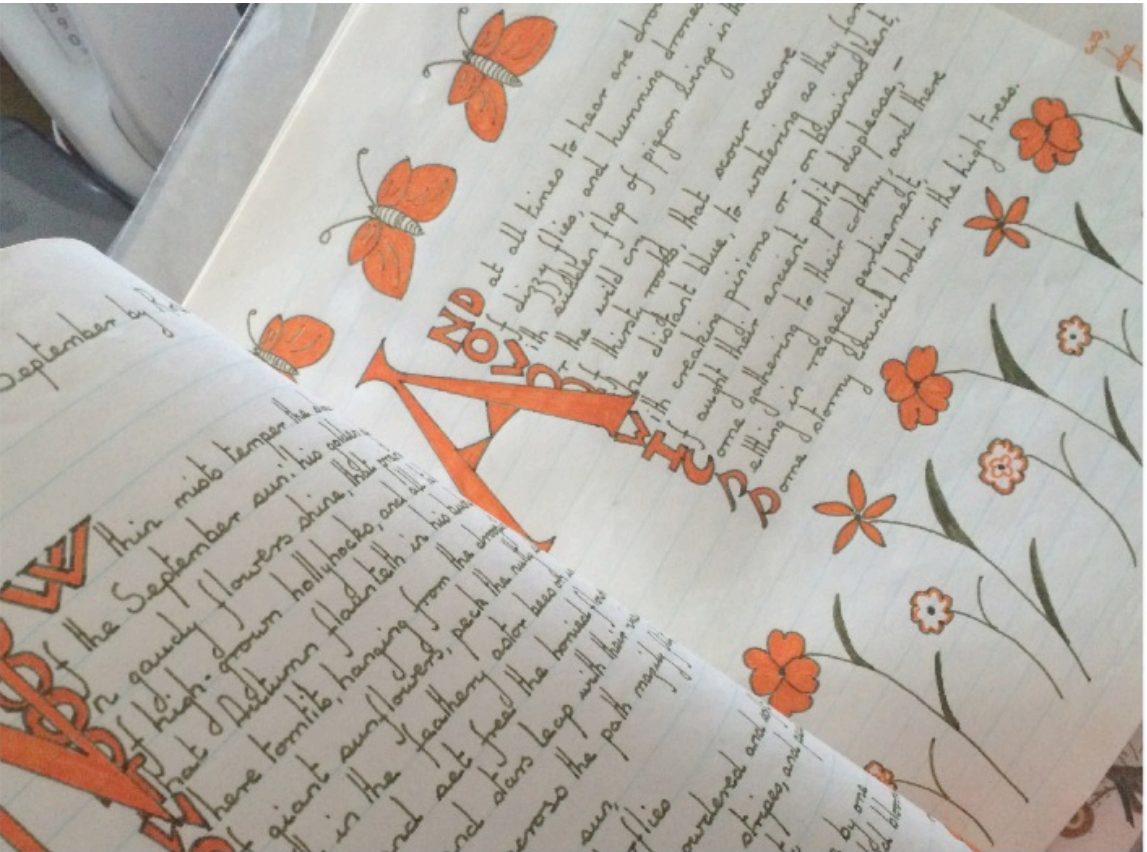 September by
thin mists temper the
f the September sun: his golden
n gaudy flowers shine, that
f high-grown hollyhocks, and all
hat Autumn flaunteth in his
here tomtits, hanging from the
f giant sunflowers, peck the
in the feathery aster bees
and set free the honied
stars leap with their
across the path mazily
sun,
powdered and
stripes, and
by one
AND at all times to hear are
Of dizzy flies, and humming drones
With sudden flap of pigeon wings in
Or the wild cry
Of thirsty rooks, that scour ascare
The distant blue, to watering as they
With creaking pinions or - on business bent,
If aught their ancient polity displease, -
Come gathering to their colony, and there
Settling in ragged parliament,
Some stormy council hold in the high trees.